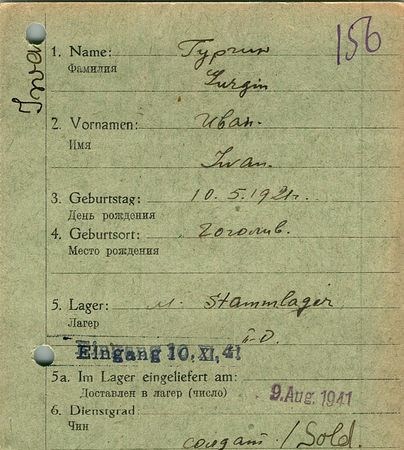 156
Iwa
1. Name: Гургин
Фамилия
Gurgin
2. Vornamen: Иван.
Имя
Iwan.
3. Geburtstag: 10.5.1921г.
День рождения
4. Geburtsort: Гоголив.
Место рождения
5. Lager: M. Stammlager
Лагер
II-D.
Eingang 10. XI. 41
5a. Im Lager eingeliefert am:
Доставлен в лагер (число) 9. Aug. 1941
6. Dienstgrad:
Чин
солдат / Sold.